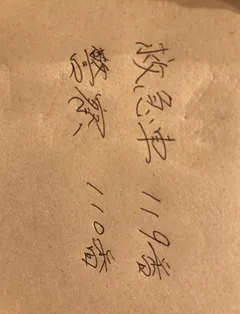 救急車 119番
警察、 110番